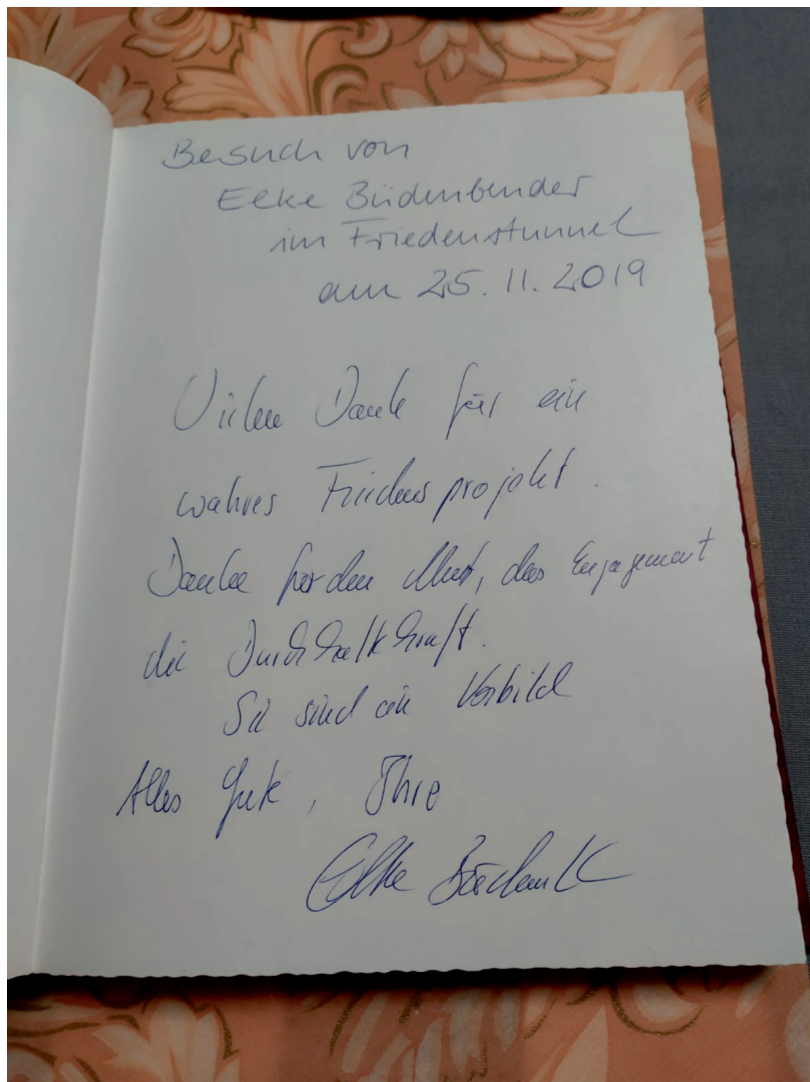 Besuch von
Elke Büdenbender
im Friedenstunnel
am 25.11.2019
Vielen Dank für ein
wahres Friedensprojekt.
Danke für den Mut, das Engagement
die Durchhaltekraft.
Sie sind ein Vorbild
Alles Gute, Ihre
Elke Büdenb